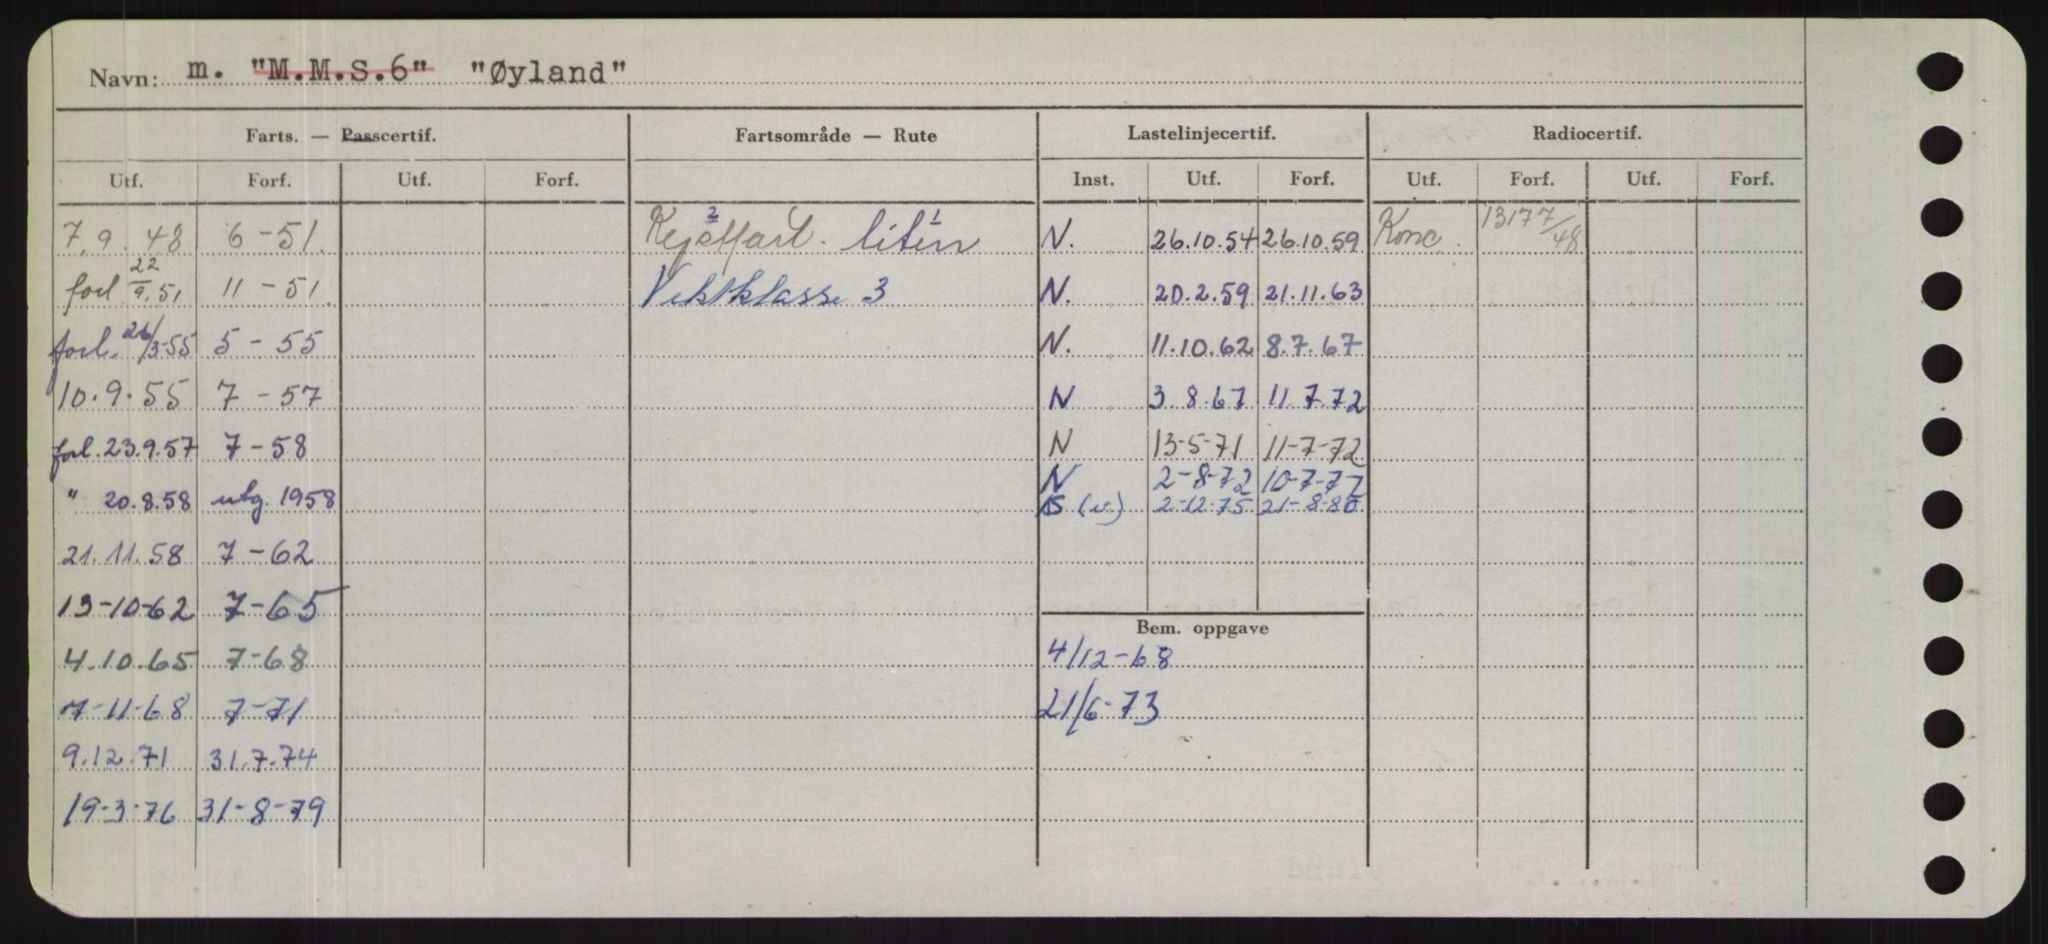 Navn: m. "M.M.S.6" "Øyland"
Farts. — Passcertif. Fartsområde — Rute Lastelinjecertif. Radiocertif.
Utf. Forf. Utf. Forf. Inst. Utf. Forf. Utf. Forf. Utf. Forf.
7.9.48 6-51. liten N. 26.10.54 26.10.59 Konc. 13177/48
forl 22/9.51 11-51. Vektklasse 3 N. 20.2.59 21.11.63
forl. 26/3-55 5-55 N. 11.10.62 8.7.67
10.9.55 7-57 N 3.8.67 11.7.72
forl. 23.9.57 7-58 N 13-5-71 11-7-72
N 2-8-72 10-7-77
" 20.8.58 utg. 1958 (v.) 2-12-75 21-8-80
21.11.58 7-62
13-10-62 7-65
Bem. oppgave
4.10.65 7-68 4/12-68
7-11-68 7-71 21/6-73
9.12.71 31.7.74
19-3-76 31-8-79